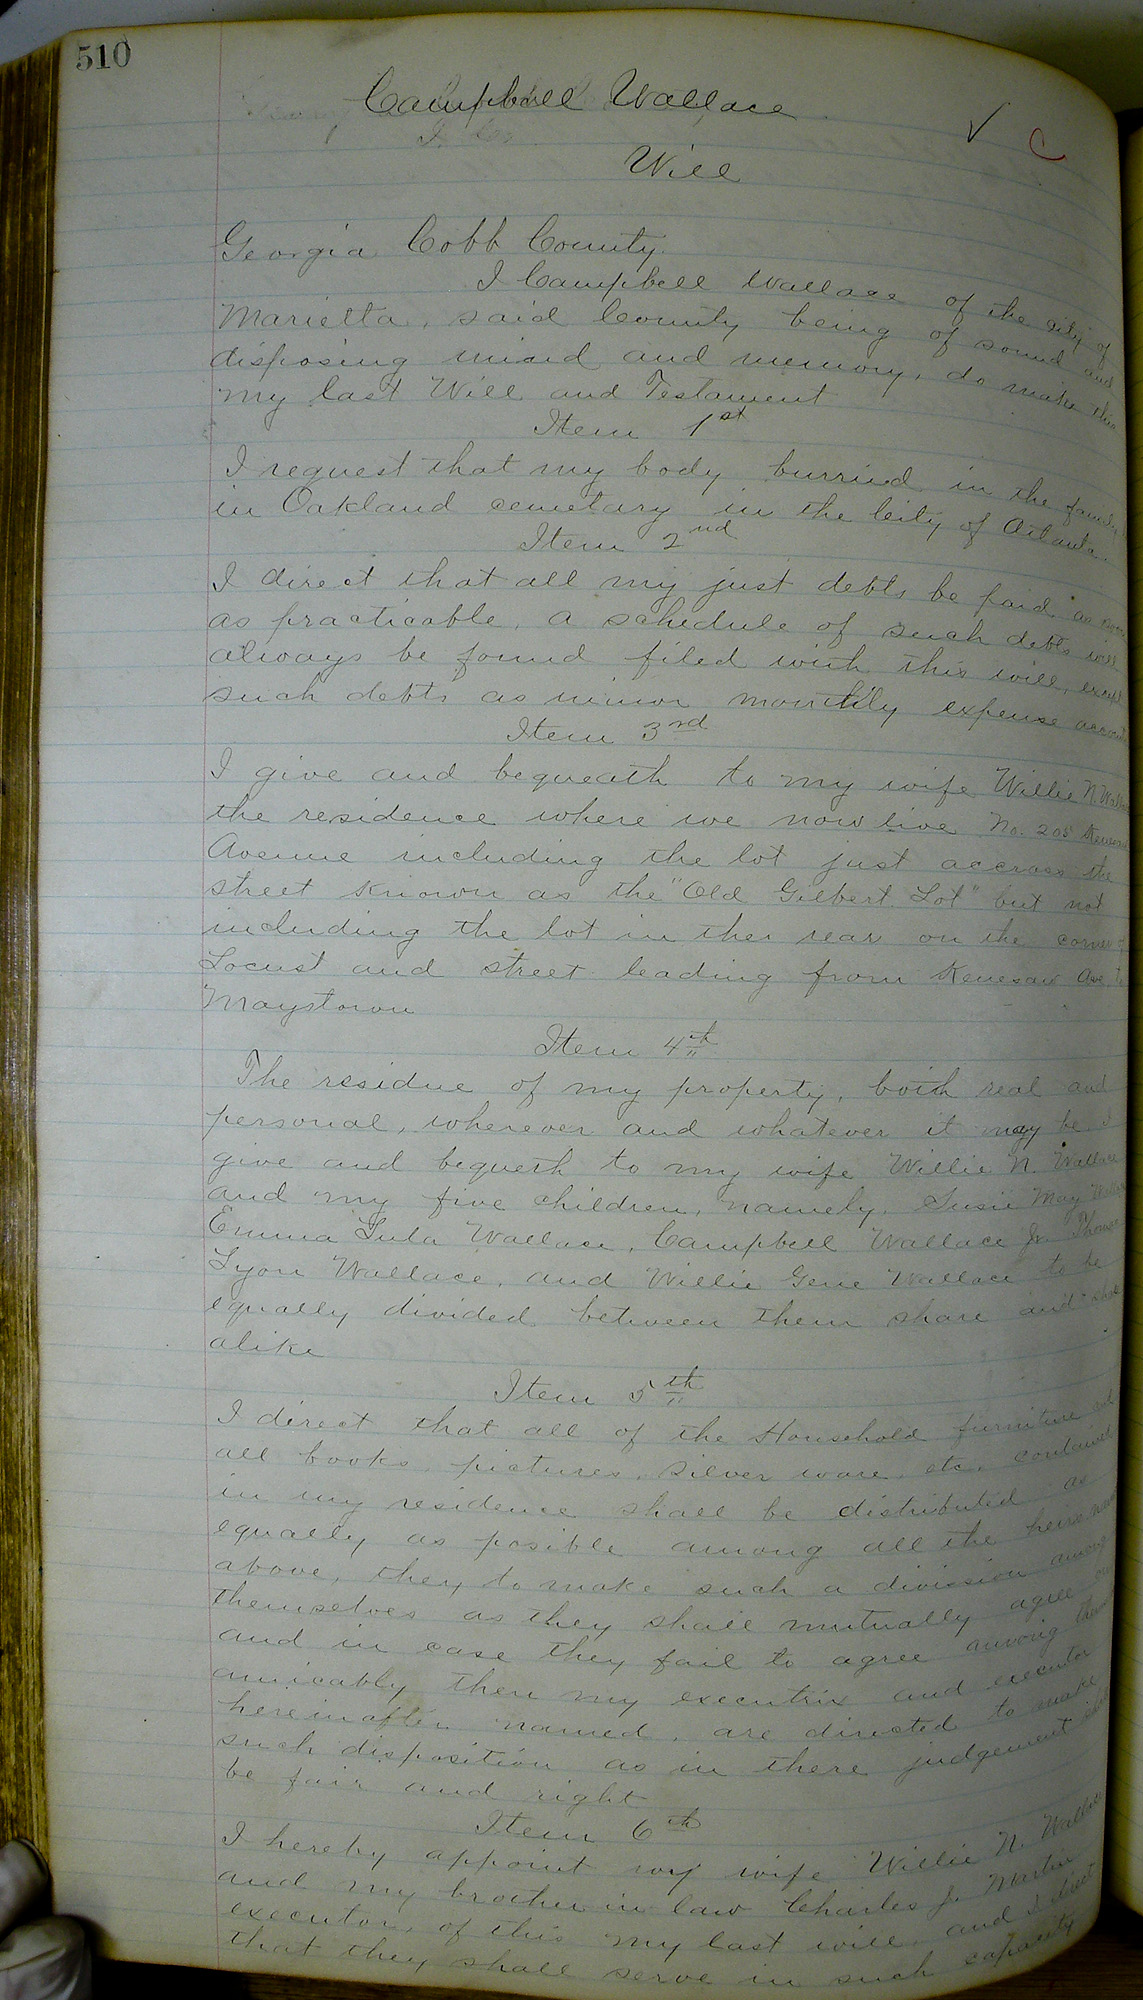 510
Campbell Wallace
Will
Georgia Cobb County.
I Campbell Wallace of the city of
Marietta, said County being of sound and
disposing mind and memory, do make this
my last Will and Testament
Item 1st
I request that my body burried in the family
in Oakland cemetary in the City of Atlanta.
Item 2nd
I direct that all my just debts be paid as soon
as practicable, a schedule of such debts will
always be found filed with this will, except
such debts as minor monthly expense
Item 3rd
I give and bequeath to my wife Willie N. Wallace
the residence where we now live No. 205
Avenue including the lot just accross the
street known as the "Old Gilbert Lot" but not
including the lot in ther rear on the corner of
Locust and street leading from Kenesaw Ave to
Maystown
Item 4th
The residue of my property, both real and
personal, wherever and whatever it may be I
give and bequeth to my wife Willie N. Wallace
and my five children, namely, Susie May
Emma Lula Wallace, Campbell Wallace Jr. Thomas
Lyon Wallace, and Willie Gene Wallace to be
equally divided between them share and share
alike
Item 5th
I direct that all of the Household furniture
all books, pictures, silver ware, etc. contained
in my residence shall be distributed as
equally as posible among all the heirs
above, they to make such a division among
themselves as they shall mutually agree on
and in case they fail to agree among
amicably then my executrix and executor
hereinafter named, are directed to make
such disposition as in there judgement shall
be fair and right
Item 6th
I hereby appoint my wife Willie N. Wallace
and my brother in law Charles J. Martin
executor, of this my last will, and I direct
that they shall serve in such capacity